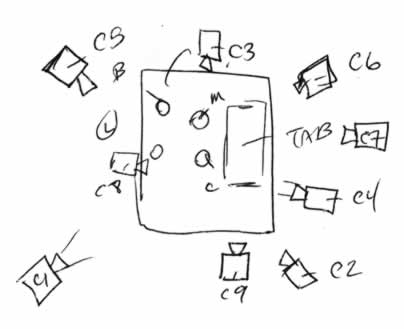 C5
C3
B
C6
M
L
TAB
C7
C8
C
C4
C1
C9
C2